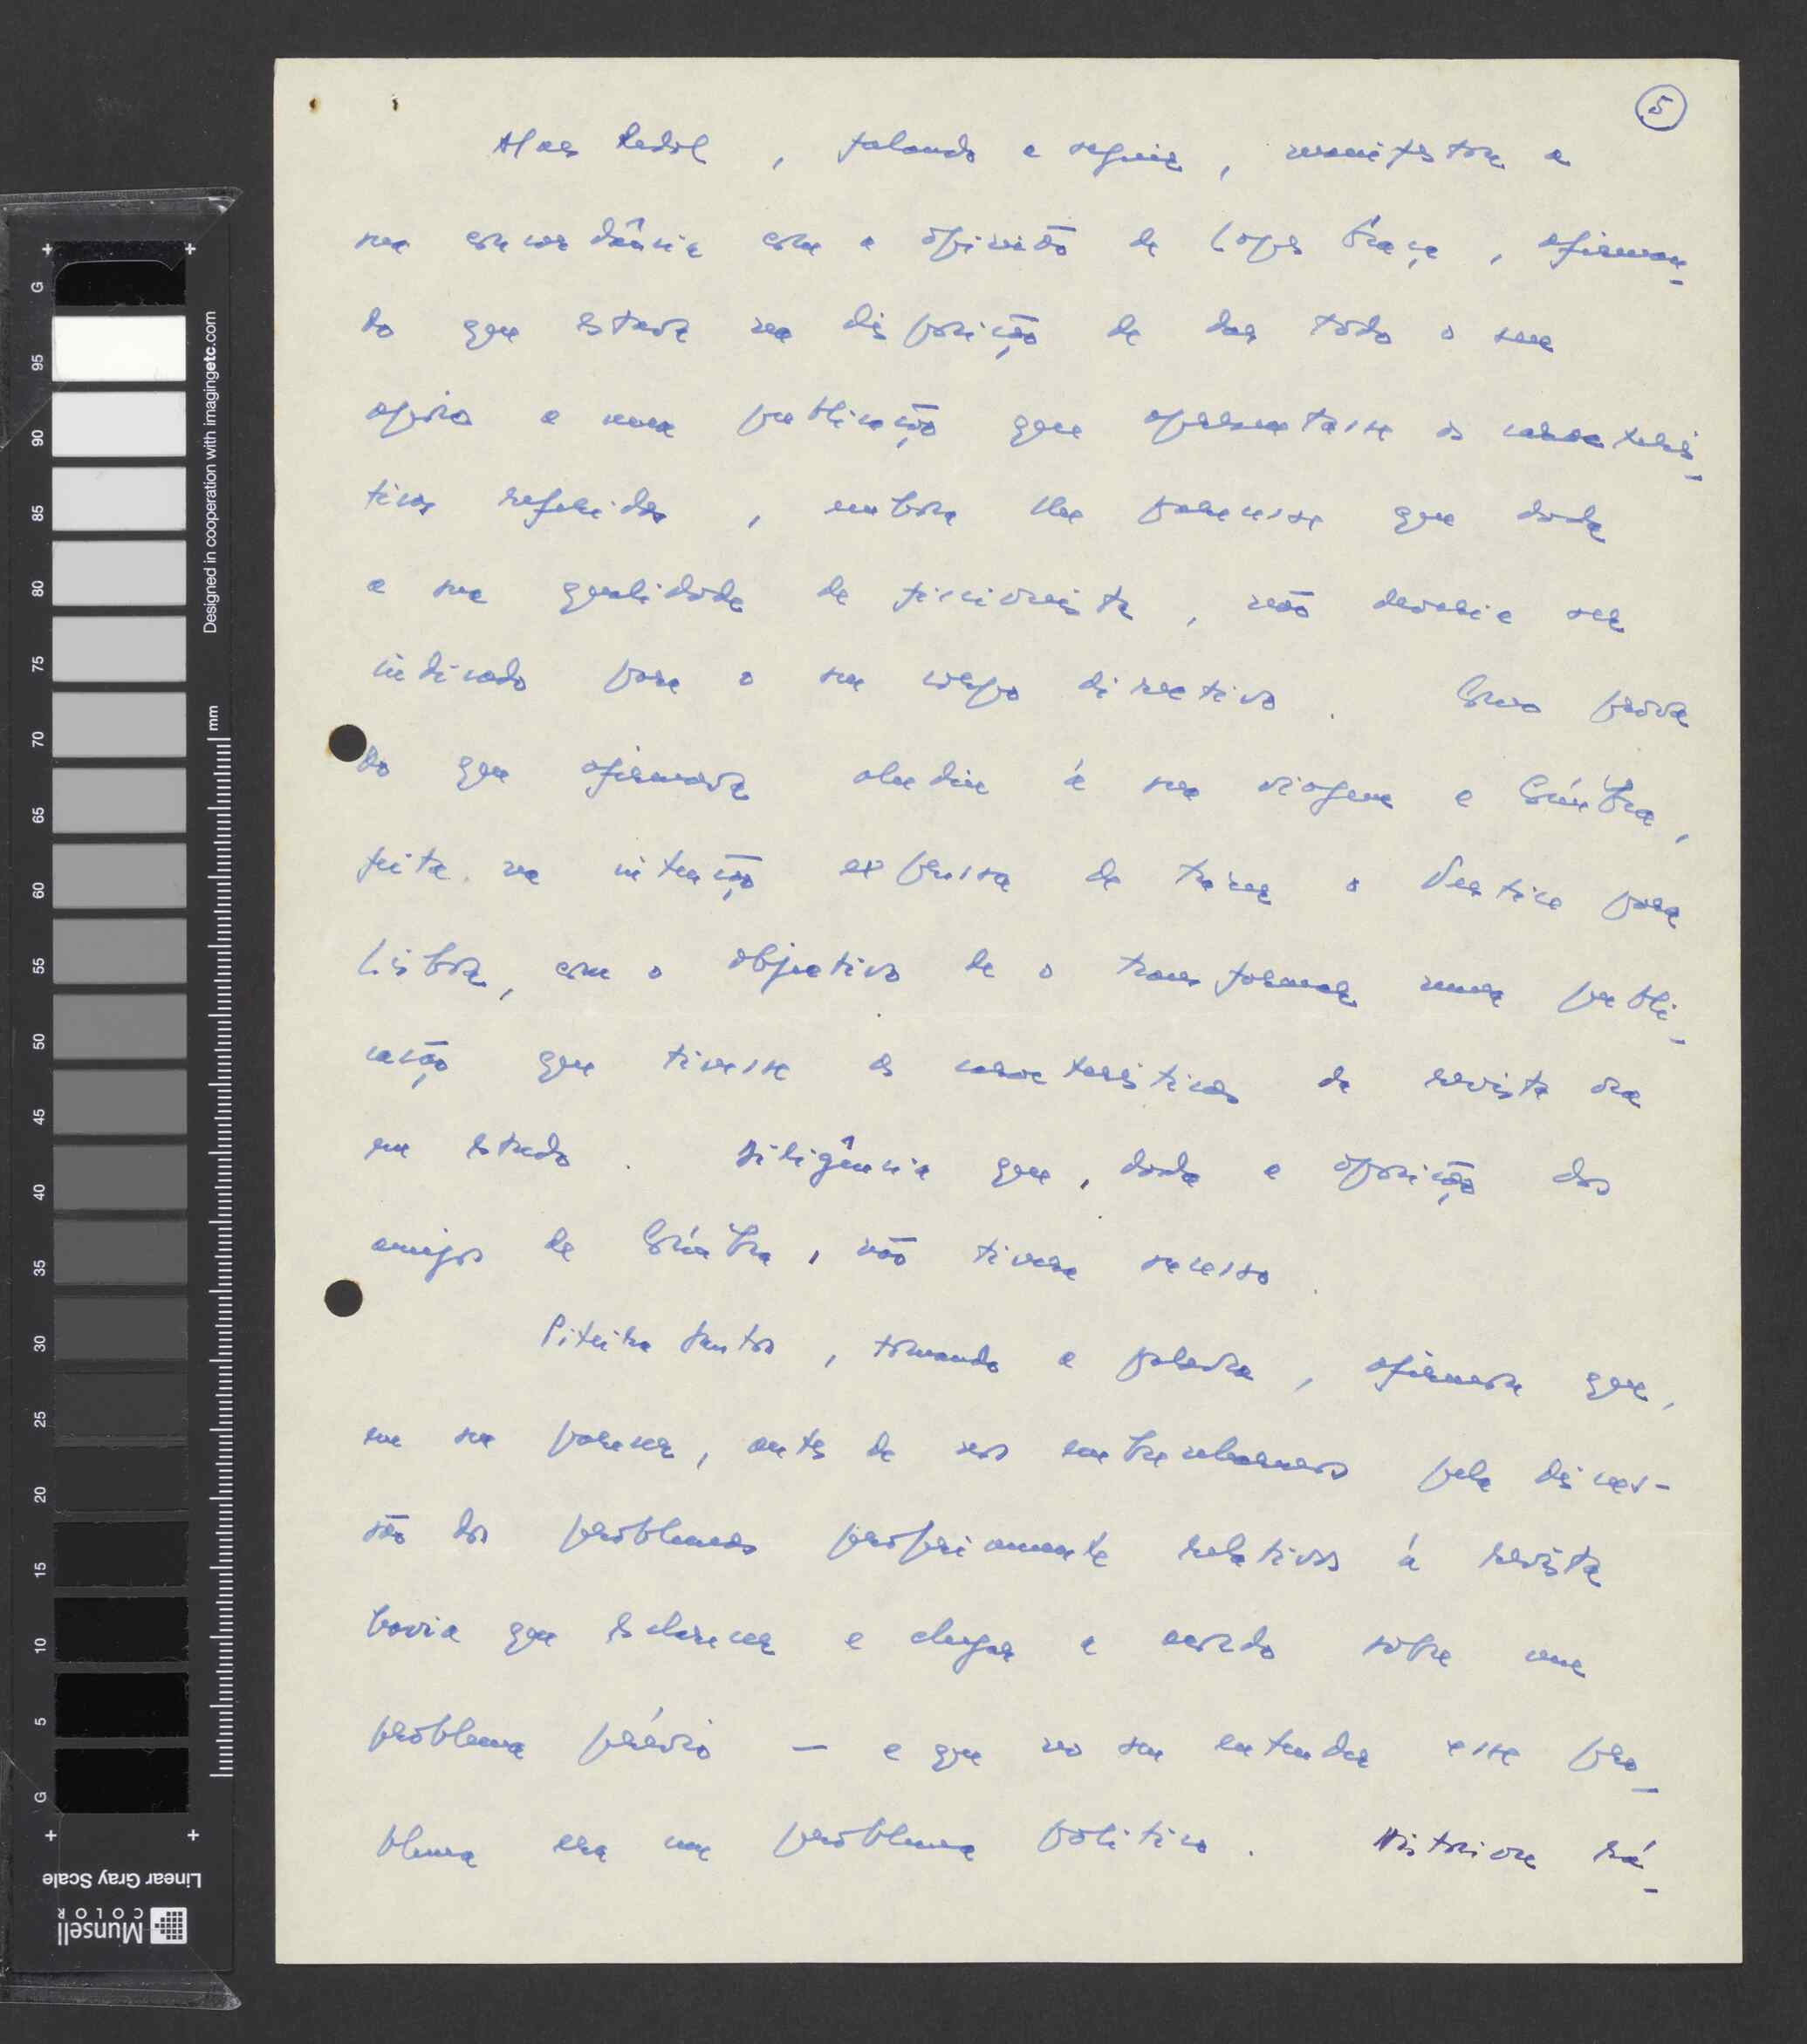 5
Alves Redol, falando a seguir, manifestou a
sua concordância com a opinião de Lopes Graça, afirman-
do que estava na disposição de dar todo o seu
apoio a uma publicação que apresentasse as caracterís-
ticas referidas, embora lhe parecesse que dada
a sua qualidade de ficcionista, não deveria ser
indicado para o seu corpo directivo. Como prova
do que afirmava aludiu à sua viagem a Coímbra,
feita na intenção expressa de trazer o Vertice para
Lisboa, com o objectivo de o transformar numa publi-
cação que tivesse as características da revista ora
em estudo. Diligência que, dada a oposição dos
amigos de Coímbra, não tivera sucesso.
Piteira Santos, tomando a palavra, afirmara que,
em seu parecer, antes de nos embrenharmos pela discus-
são dos problemas própriamente relativos à revista
havia que esclarecer e chegar a acordo sobre um
problema prévio — e que no seu entender esse pro-
blema era um problema politico. Historiou rá-
G
95
90
85
80
75
70
65
60
55
50
45
40
35
30
25
20
15
10
5
G
mm
Designed in cooperation with imagingetc.com
Linear Gray Scale
Munsell
COLOR